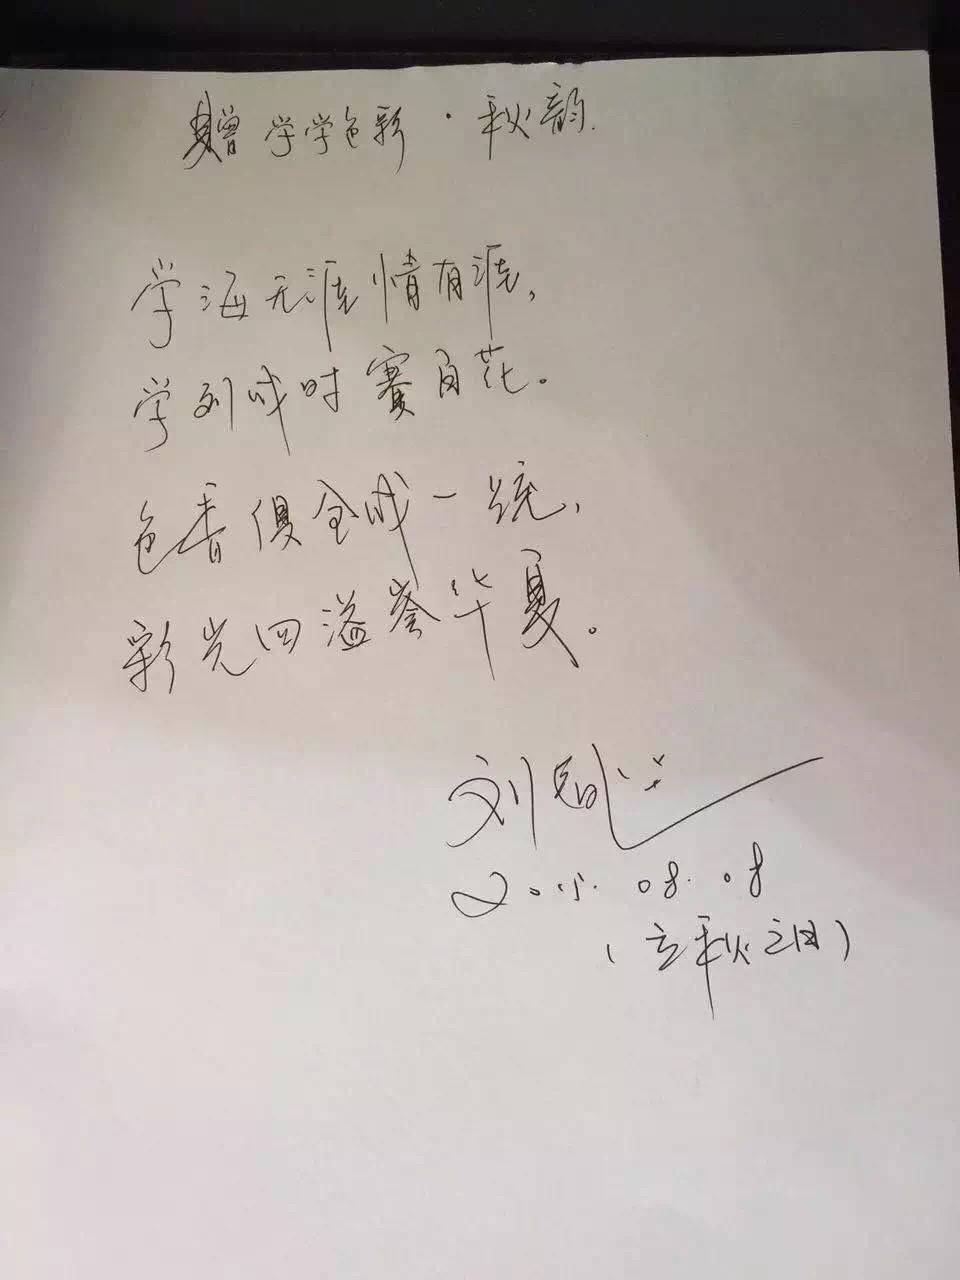 赠 学学色彩·秋韵.
学海无涯情有涯,
学到成时赛百花。
色香俱全成一统,
彩光四溢誉华夏。
刘
2015.08.08
(立秋之日)